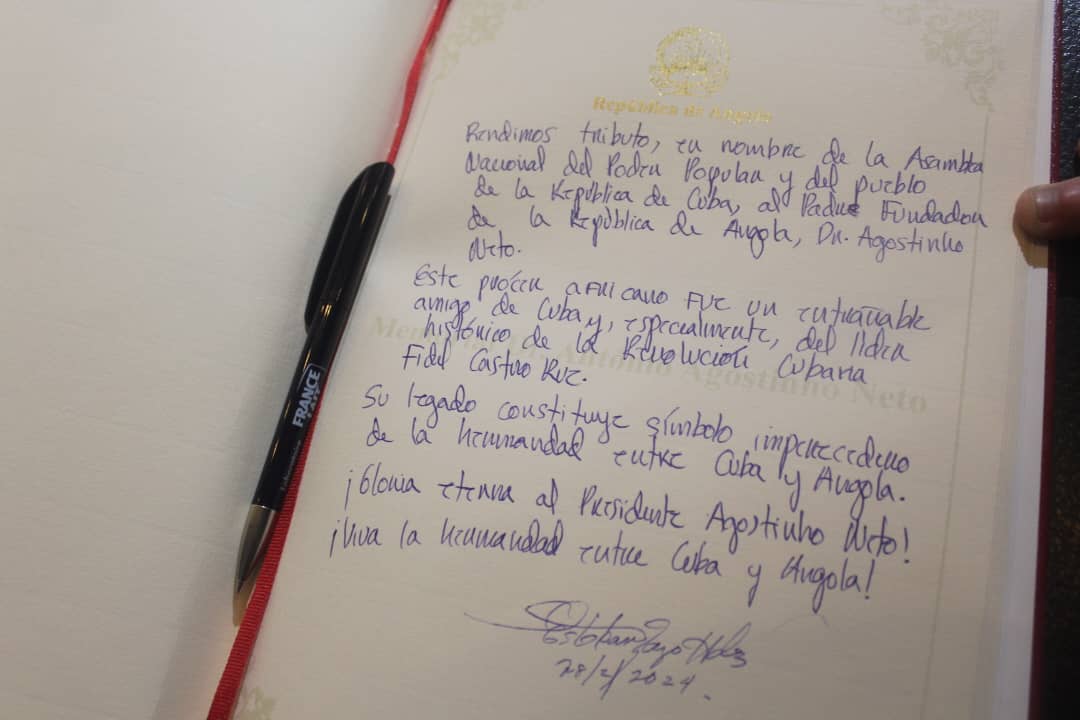 República de Angola
Rendimos tributo, en nombre de la Asamblea
Nacional del Poder Popular y del pueblo
de la República de Cuba, al Padre Fundador
de la República de Angola, Dr. Agostinho
Neto.
Este prócer africano fue un entrañable
amigo de Cuba y, especialmente, del líder
histórico de la Revolución Cubana
Fidel Castro Ruz.
Su legado constituye símbolo imperecedero
de la hermandad entre Cuba y Angola.
¡Gloria eterna al Presidente Agostinho Neto!
¡Viva la hermandad entre Cuba y Angola!
Esteban Lazo Hdez
28/2/2024.
António Agostinho Neto
FRANCE